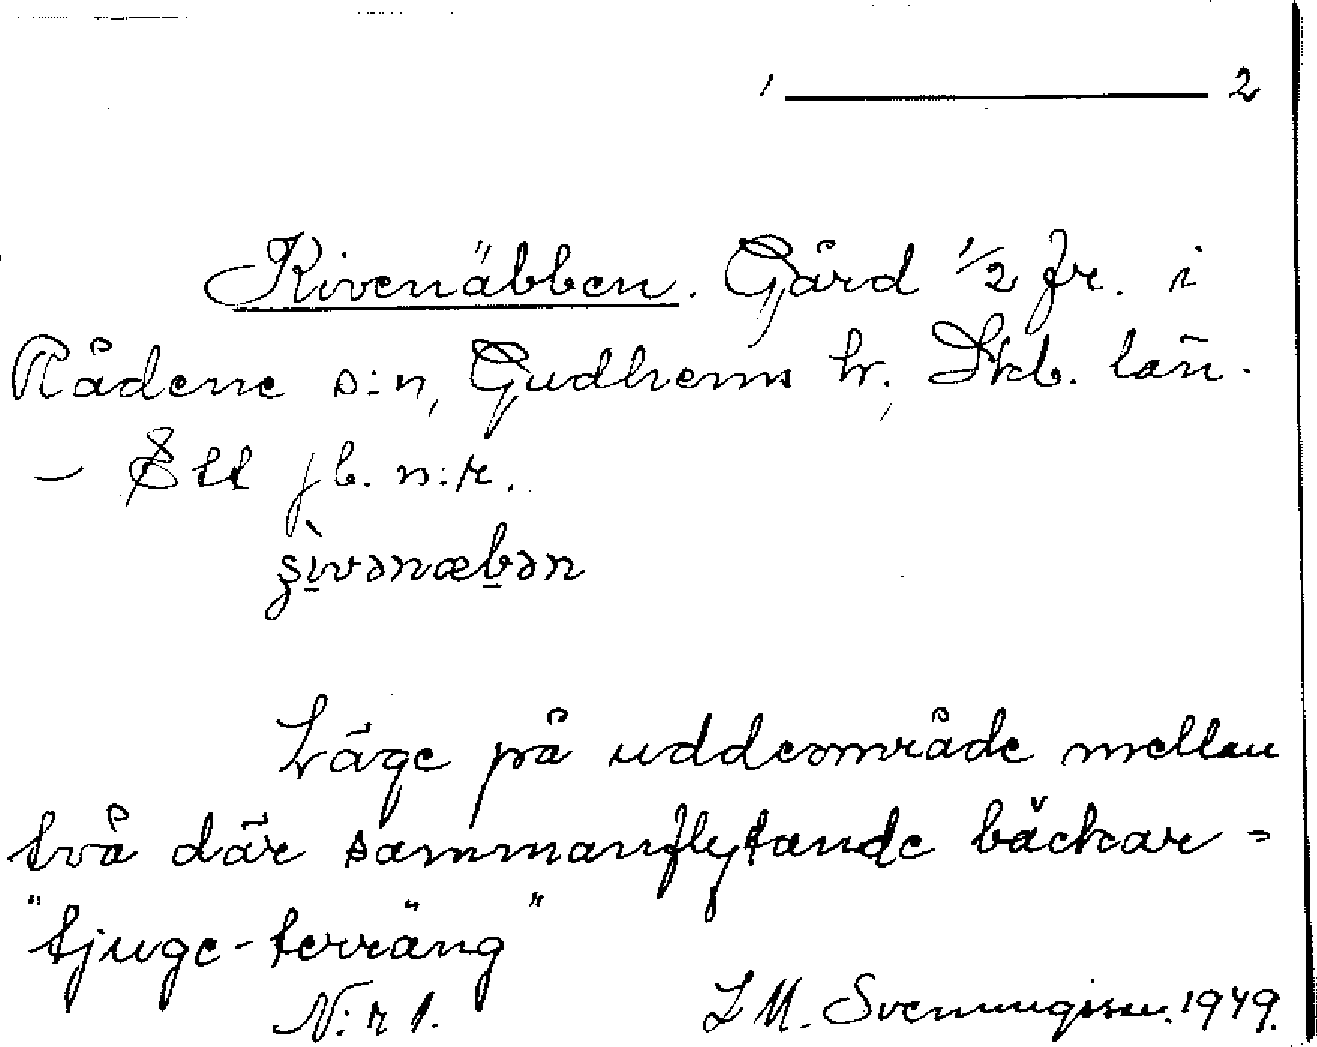 1 ——— 2
Kivenäbben. Gård 1/2 fr. i
Rådene s:n, Gudhems hr, Skb. län.
– Ett jb. n:r.
ʂìvənæbən
Läge på uddeområde mellan
två där sammanflytande bäckar =
"tjuge-terräng"
N:r 1. L M. Svenungsson. 1949.